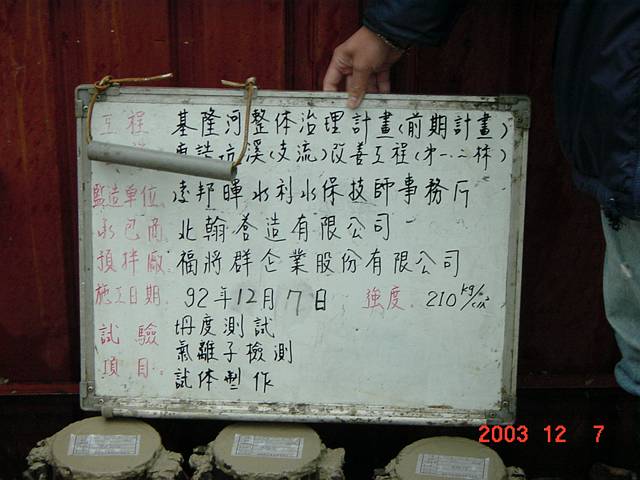 工程 基隆河整体治理計畫(前期計畫)
坑溪(支流)改善工程(
監造單位 凌邦暉水利水保技師事務所
承包商 北翰營造有限公司
預拌廠 福將群企業股份有限公司
施工日期 92年12月7日 強度 210 kg/cm²
試驗 坍度測試
氯離子檢測
項目 試体製作
2003 12 7